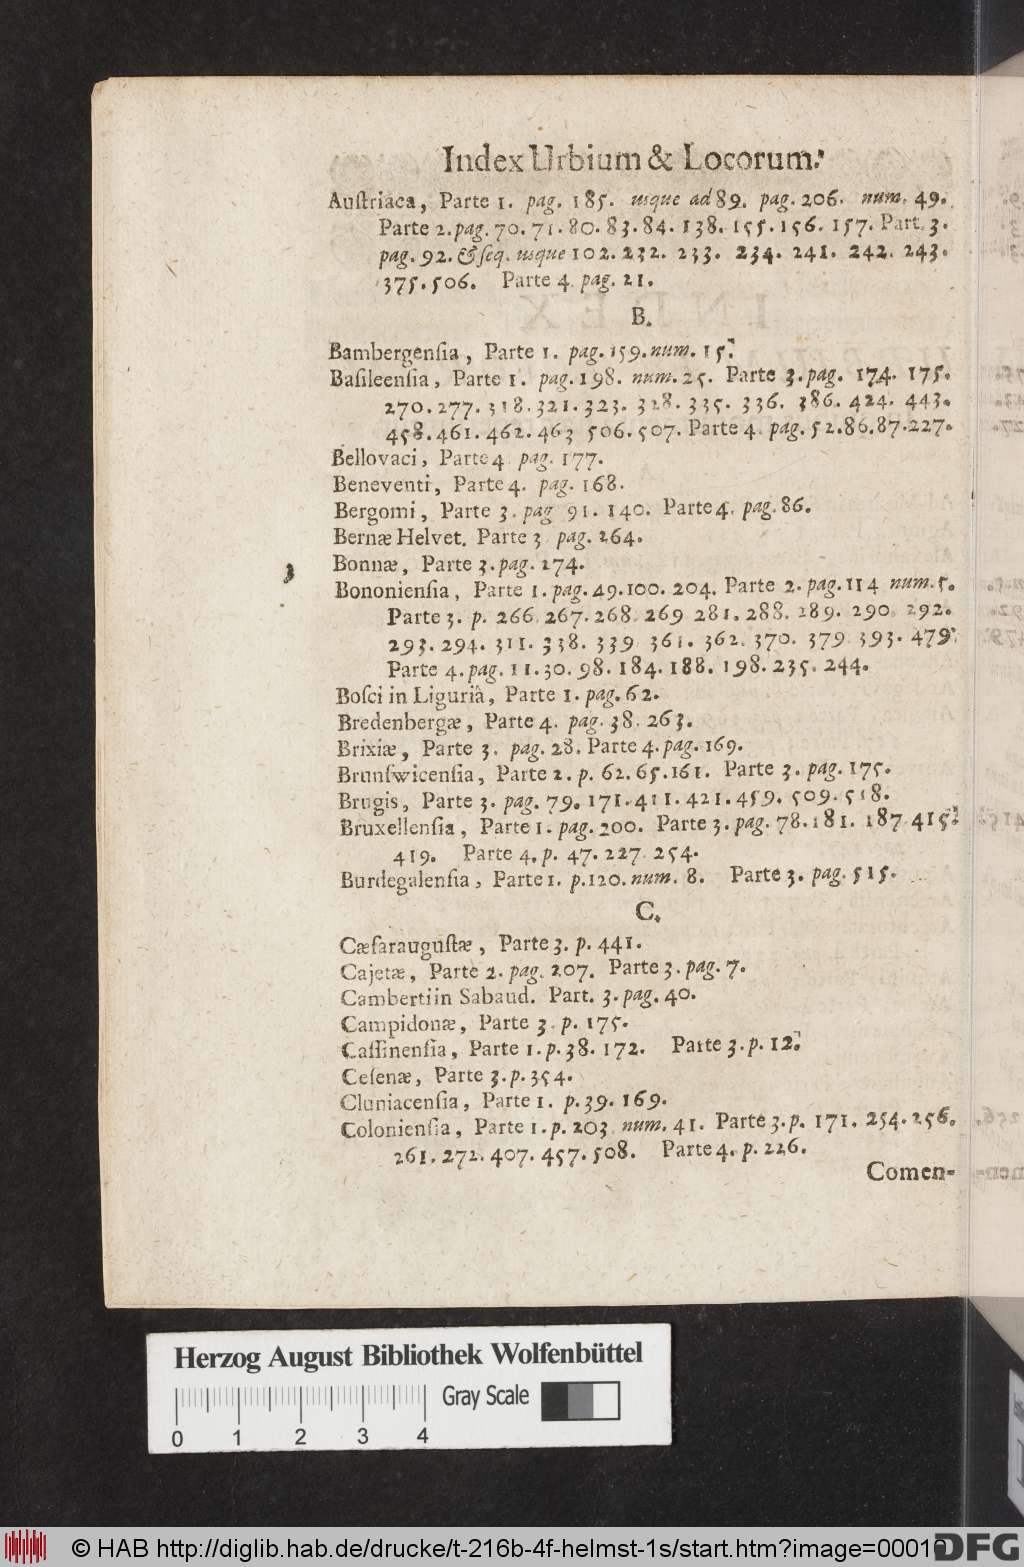 Index Urbium & Locorum.
Auſtriaca, Parte 1. pag. 185. usque ad 89. pag. 206. num. 49.
Parte 2. pag. 70. 71. 80. 83. 84. 138. 155. 156. 157. Part. 3.
pag. 92. & ſeq. usque 102. 232. 233. 234. 241. 242. 243.
375. 506. Parte 4. pag. 21.
B.
Bambergenſia, Parte 1. pag. 159. num. 15.
Baſileenſia, Parte 1. pag. 198. num. 25. Parte 3. pag. 174. 175.
270. 277. 318. 321. 323. 328. 335. 336. 386. 424. 443.
458. 461. 462. 463 506. 507. Parte 4. pag. 52. 86. 87. 227.
Bellovaci, Parte 4 pag. 177.
Beneventi, Parte 4. pag. 168.
Bergomi, Parte 3. pag 91. 140. Parte 4. pag. 86.
Bernæ Helvet. Parte 3 pag. 264.
Bonnæ, Parte 3. pag. 274.
Bononienſia, Parte 1. pag. 49. 100. 204. Parte 2. pag. 114 num. 5.
Parte 3. p. 266. 267. 268. 269 281. 288. 289. 290. 292.
293. 294. 311. 338. 339 361. 362. 370. 379 393. 479.
Parte 4. pag. 11. 30. 98. 184. 188. 198. 235. 244.
Boſci in Liguriâ, Parte 1. pag. 62.
Bredenbergæ, Parte 4. pag. 38. 263.
Brixiæ, Parte 3. pag. 28. Parte 4. pag. 169.
Brunſwicenſia, Parte 2. p. 62. 65. 161. Parte 3. pag. 175.
Brugis, Parte 3. pag. 79. 171. 411. 421. 459. 509. 518.
Bruxellenſia, Parte 1. pag. 200. Parte 3. pag. 78. 181. 187. 415.
419. Parte 4. p. 47. 227. 254.
Burdegalenſia, Parte 1. p. 120. num. 8. Parte 3. pag. 515.
C.
Cæſarauguſtæ, Parte 3. p. 441.
Cajetæ, Parte 2. pag. 207. Parte 3. pag. 7.
Camberti in Sabaud. Part. 3. pag. 40.
Campidonæ, Parte 3. p. 175.
Caſſinenſia, Parte 1. p. 38. 172. Parte 3. p. 12.
Ceſenæ, Parte 3. p. 354.
Cluniacenſia, Parte 1. p. 39. 169.
Colonienſia, Parte 1. p. 203 num. 41. Parte 3. p. 171. 254. 256.
261. 272. 407. 457. 508. Parte 4. p. 226.
Comen-
Herzog August Bibliothek Wolfenbüttel
Gray Scale
0 1 2 3 4
© HAB http://diglib.hab.de/drucke/t-216b-4f-helmst-1s/start.htm?image=00010
DFG